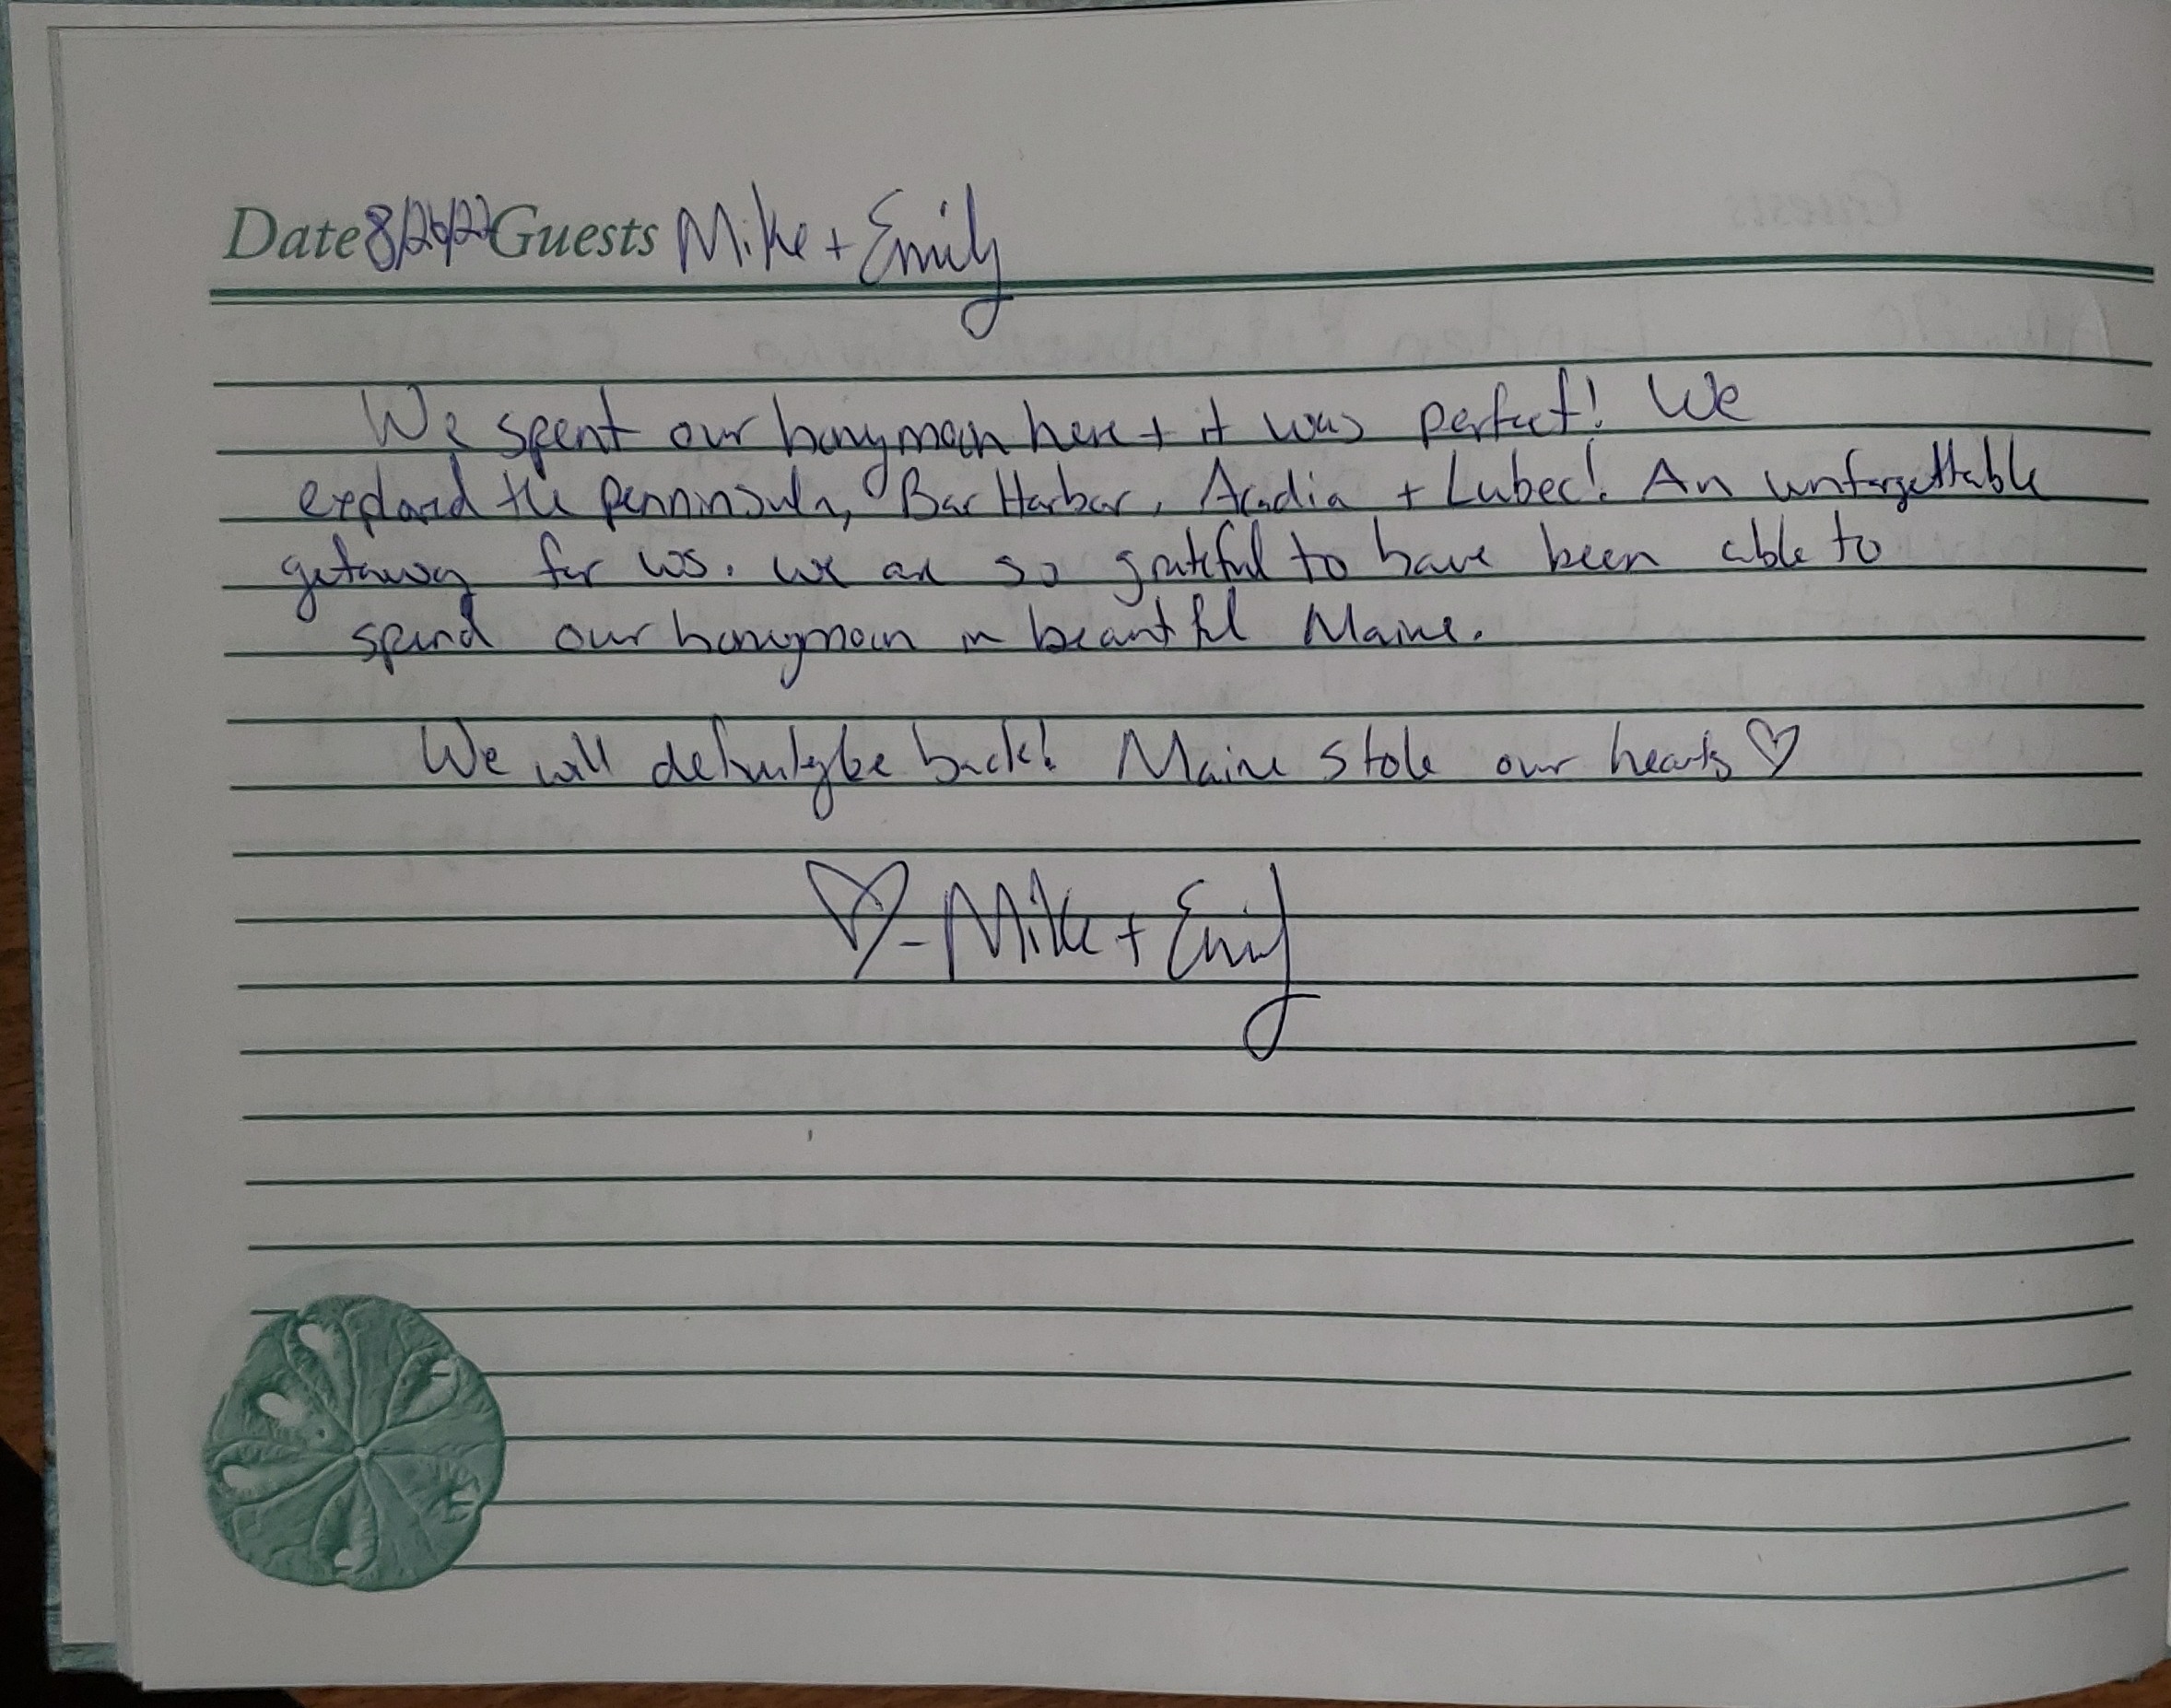 Date 8/26/22 Guests Mike + Emily
We spent our honeymoon here + it was perfect! We
explored the penninsula, Bar Harbor, Acadia + Lubec! An unforgettable
getaway for us. we are so grateful to have been able to
spend our honeymoon in beautiful Maine.
We will definitely be back! Maine stole our hearts ♡
♡ - Mike + Emily